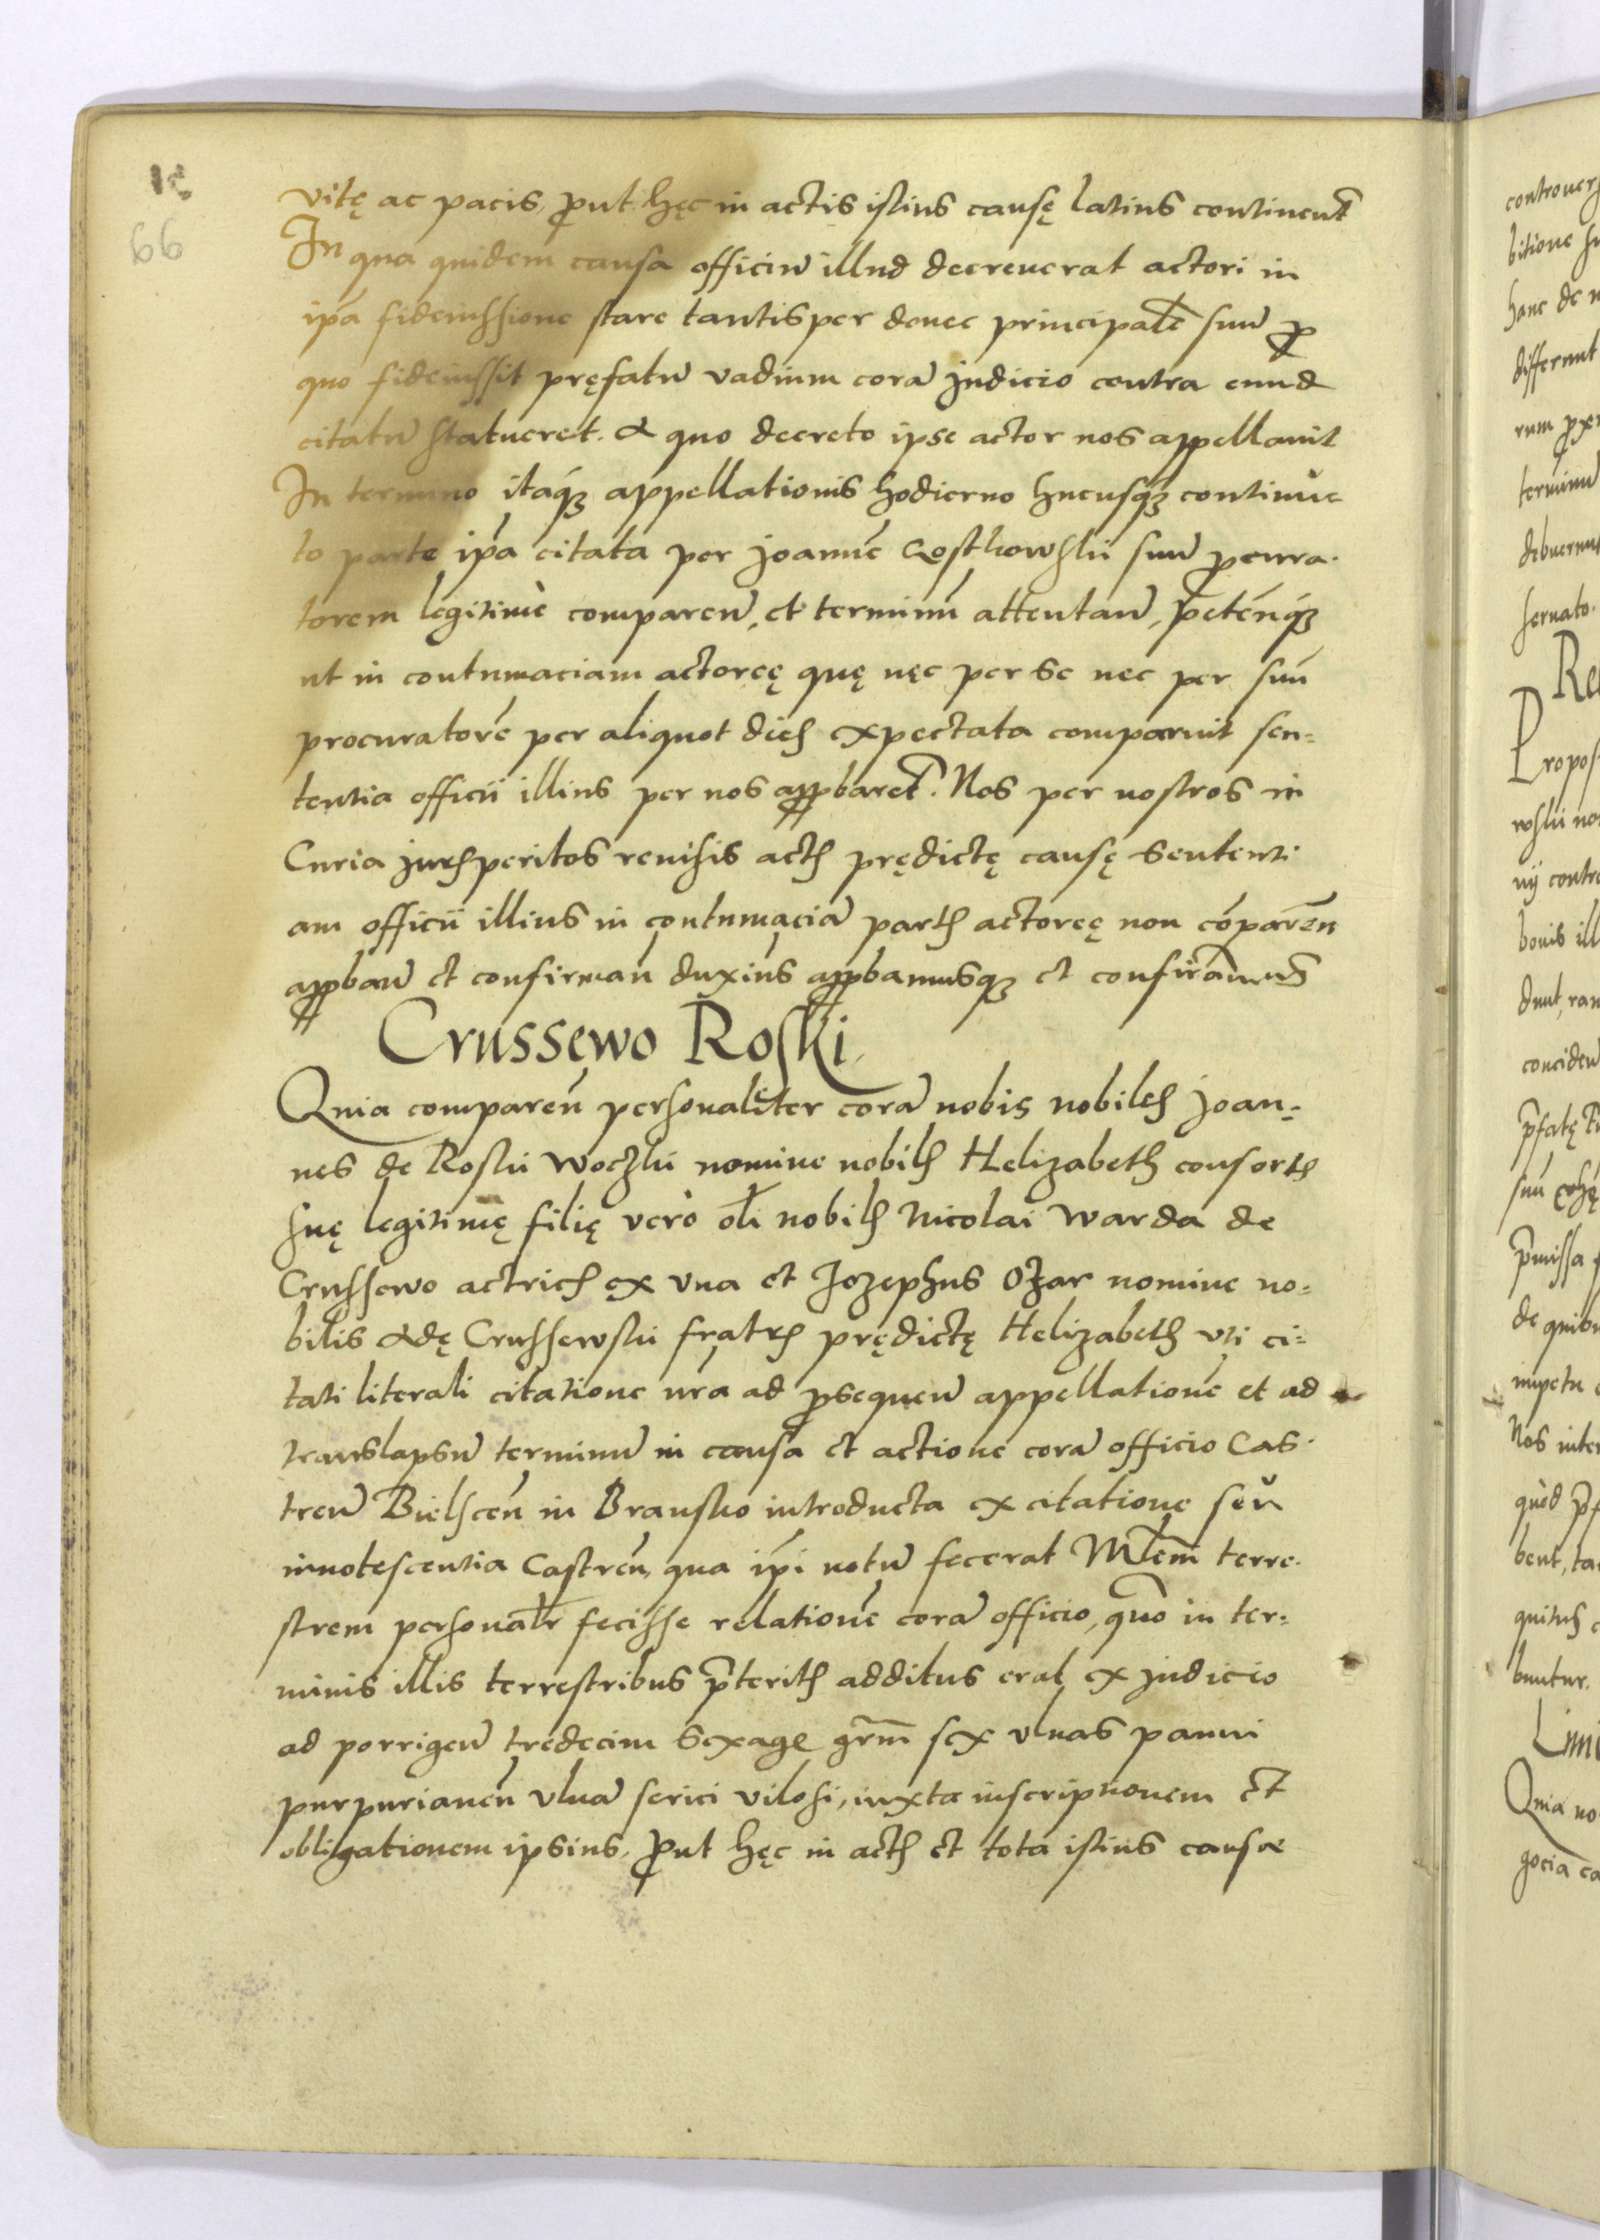 vitę ac pacis, ꝓut hęc in actis istius causę latius continent᷑
In qua quidem causa officiũ illud decreuerat actori in
ip̃a fideiussione stare tantisper donec principalẽ suũ ꝓ
quo fideiussit pręfatũ vadium corã judicio contra eund
citatũ statueret. A quo decreto ipse actor nos appellauit
In termino itaq́ꝫ appellationis hodierno hucusqꝫ continua
to parte ip̃a citata per joannẽ Costkowskii suũ ꝓcura-
torem legitimè comparen̄, et terminũ attentan̄, petẽnq́ꝫ
ut in contumaciam actoreę quę nęc per se nec per suũ
procuratorẽ per aliquot dies expectata comparuit sen=
tentia officii illius per nos apꝓbaret᷑. Nos per nostros in
Curia jurisperitos reuisis actis prędictę causę sententi
am officii illius in contumaciã partis actoreę non cõparen̄
apꝓban̄ et confirman̄ duxim᷒ apꝓbamusqꝫ et confirmam᷒
Crussewo Roski
Quia comparen̄ personaliter corã nobis nobiles joan=
nes de Roskii woczkii nomine nobilis Helizabeth consortis
suę legitimę filię verò oli nobilis Nicolai warda de
Crussewo actricis ex vna et Jozephus Ozar nomine no=
bilis Adę Crussewskii fratris prędictę Helizabeth vti ci=
tati literali citatione nr̃a ad ꝓsequen̄ appellationẽ et ad
translapsũ terminũ in causa et actione corã officio Cas-
tren̄ Bielscen̄ in Bransko introducta ex citatione seu
innotescentia Castren̄, qua ip̃i notũ fecerat Mlẽm terre-
strem personalr̃ fecisse relationẽ corã officio, quõ in ter=
minis illis terrestribus p̃teritis additus erat ex judicio
ad porrigen̄ tredecim sexage gr̃m sex vlnas panni
purpurianen̄ vlnã serici vilosi, iuxta inscriptionem et
obligationem ipsius, ꝓut hęc in actis et tota istius causæ